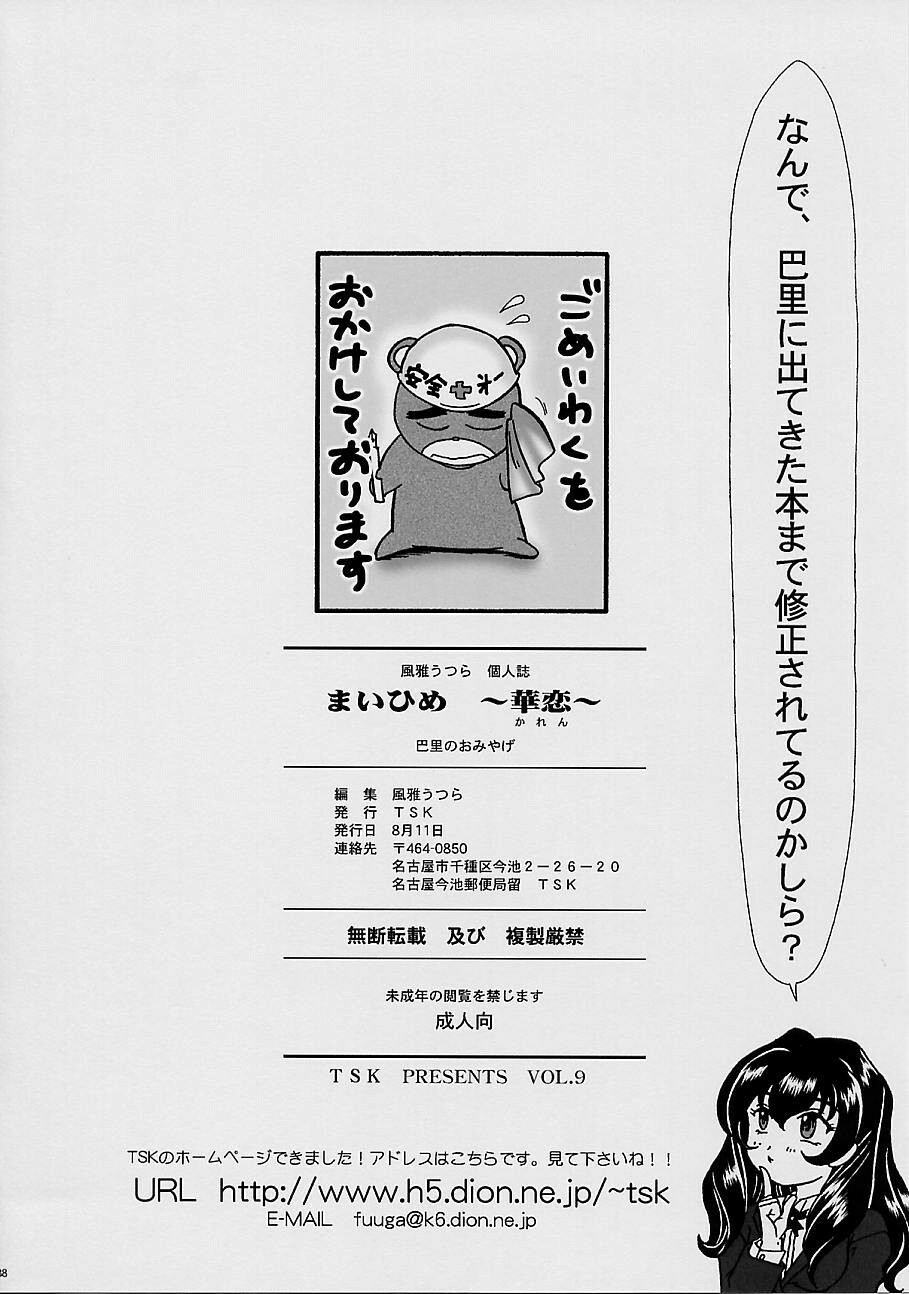 なんで、巴里に出てきた本まで修正されてるのかしら？
ごめいわくを
おかけしております
安全＋第一
風雅うつら　個人誌
まいひめ　～華恋～
かれん
巴里のおみやげ
編　集　風雅うつら
発　行　ＴＳＫ
発行日　8月11日
連絡先　〒464-0850
名古屋市千種区今池２－２６－２０
名古屋今池郵便局留　ＴＳＫ
無断転載　及び　複製厳禁
未成年の閲覧を禁じます
成人向
ＴＳＫ　PRESENTS　VOL.9
TSKのホームページできました！アドレスはこちらです。見て下さいね！！
URL　http://www.h5.dion.ne.jp/~tsk
E-MAIL　fuuga@k6.dion.ne.jp